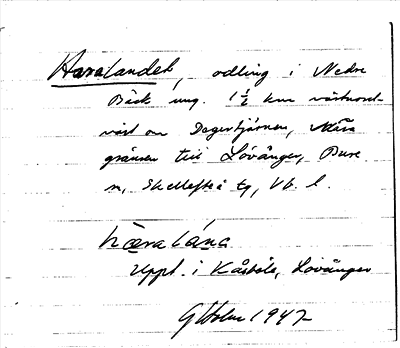 Haralandet, odling i Nedre
Bäck ung. 1½ km västnord-
väst om Degertjärnen, nära
gränsen till Lövånger, Bure
sn, Skellefteå tg, Vb. l.
hæralánα
Uppt. i Kåsböle, Lövånger
GHolm 1947